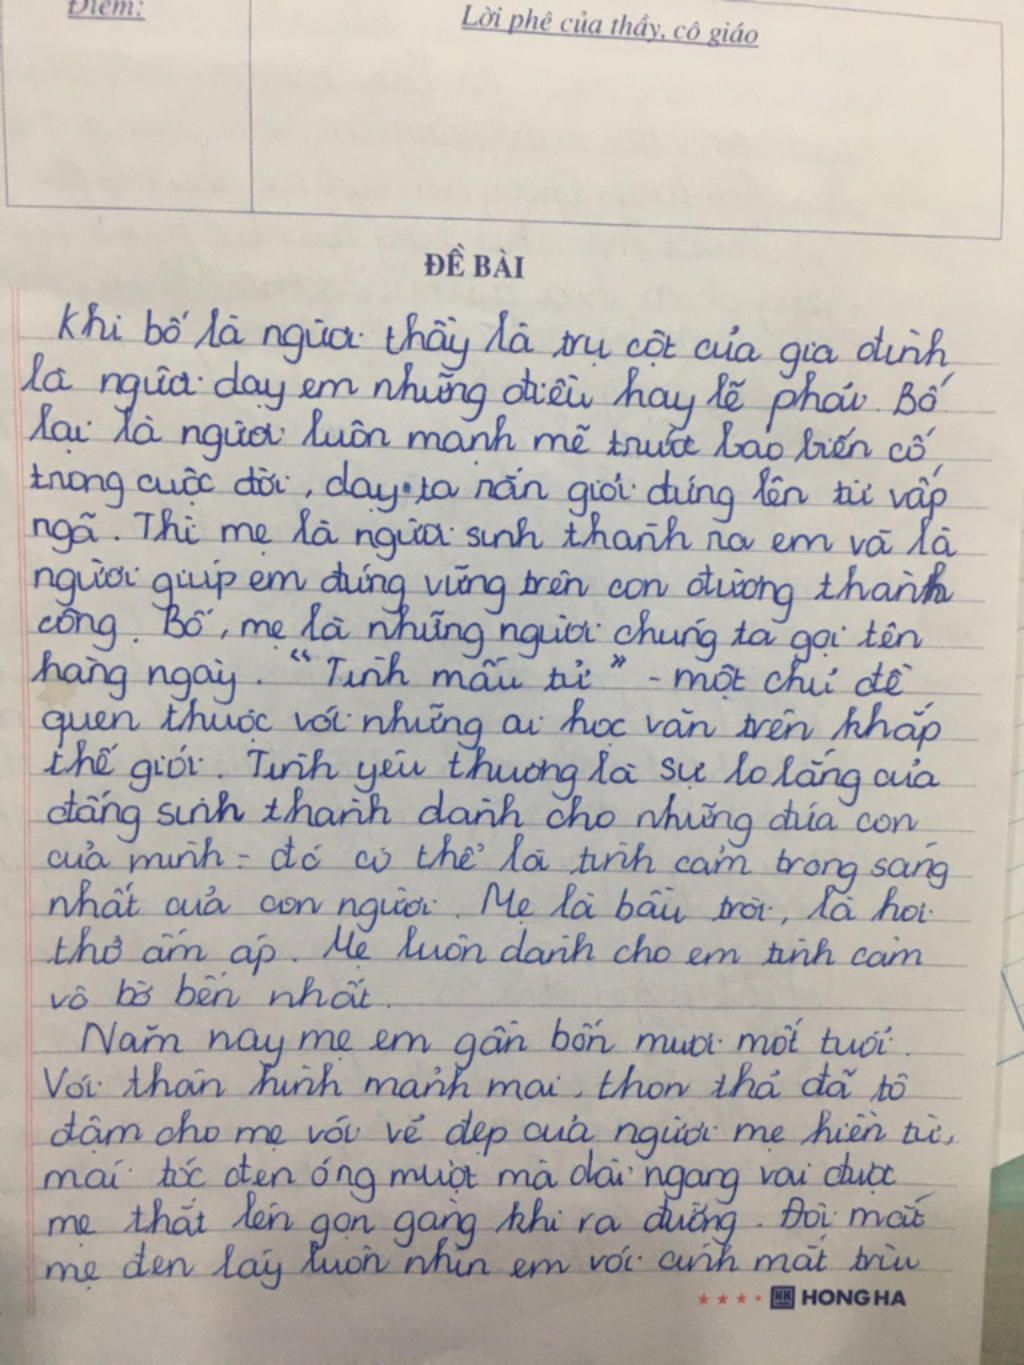 Điểm:
Lời phê của thầy, cô giáo
ĐỀ BÀI
Khi bố là người thầy là trụ cột của gia đình
là người dạy em những điều hay lẽ phải. Bố
lại là người luôn mạnh mẽ trước bao biến cố
trong cuộc đời, dạy ta rắn giỏi đứng lên từ vấp
ngã. Thì mẹ là người sinh thành ra em và là
người giúp em đứng vững trên con đường thành
công. Bố, mẹ là những người chúng ta gọi tên
hàng ngày. "Tình mẫu tử" - một chủ đề
quen thuộc với những ai học văn trên khắp
thế giới. Tình yêu thương là sự lo lắng của
đấng sinh thành dành cho những đứa con
của mình - đó có thể là tình cảm trong sáng
nhất của con người. Mẹ là bầu trời, là hơi
thở ấm áp. Mẹ luôn dành cho em tình cảm
vô bờ bến nhất.
Năm nay mẹ em gần bốn mươi mốt tuổi.
Với thân hình mảnh mai, thon thả đã tô
đậm cho mẹ với vẻ đẹp của người mẹ hiền từ,
mái tóc đen óng mượt mà dài ngang vai được
mẹ thắt lên gọn gàng khi ra đường. Đôi mắt
mẹ đen láy luôn nhìn em với ánh mắt trìu
HONG HA